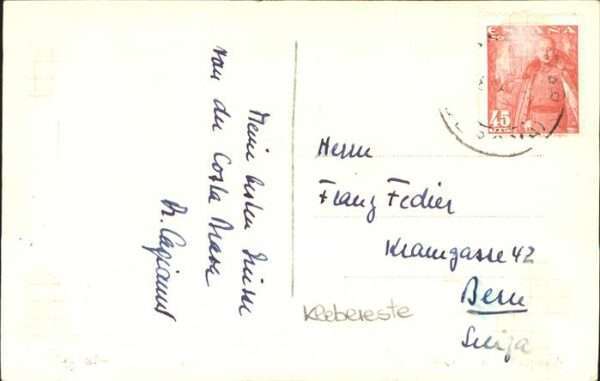 Meine besten Grüsse
von der Costa Brava
Herrn
Franz Fedier
Kramgasse 42
Bern
Suiza
Klebereste
45